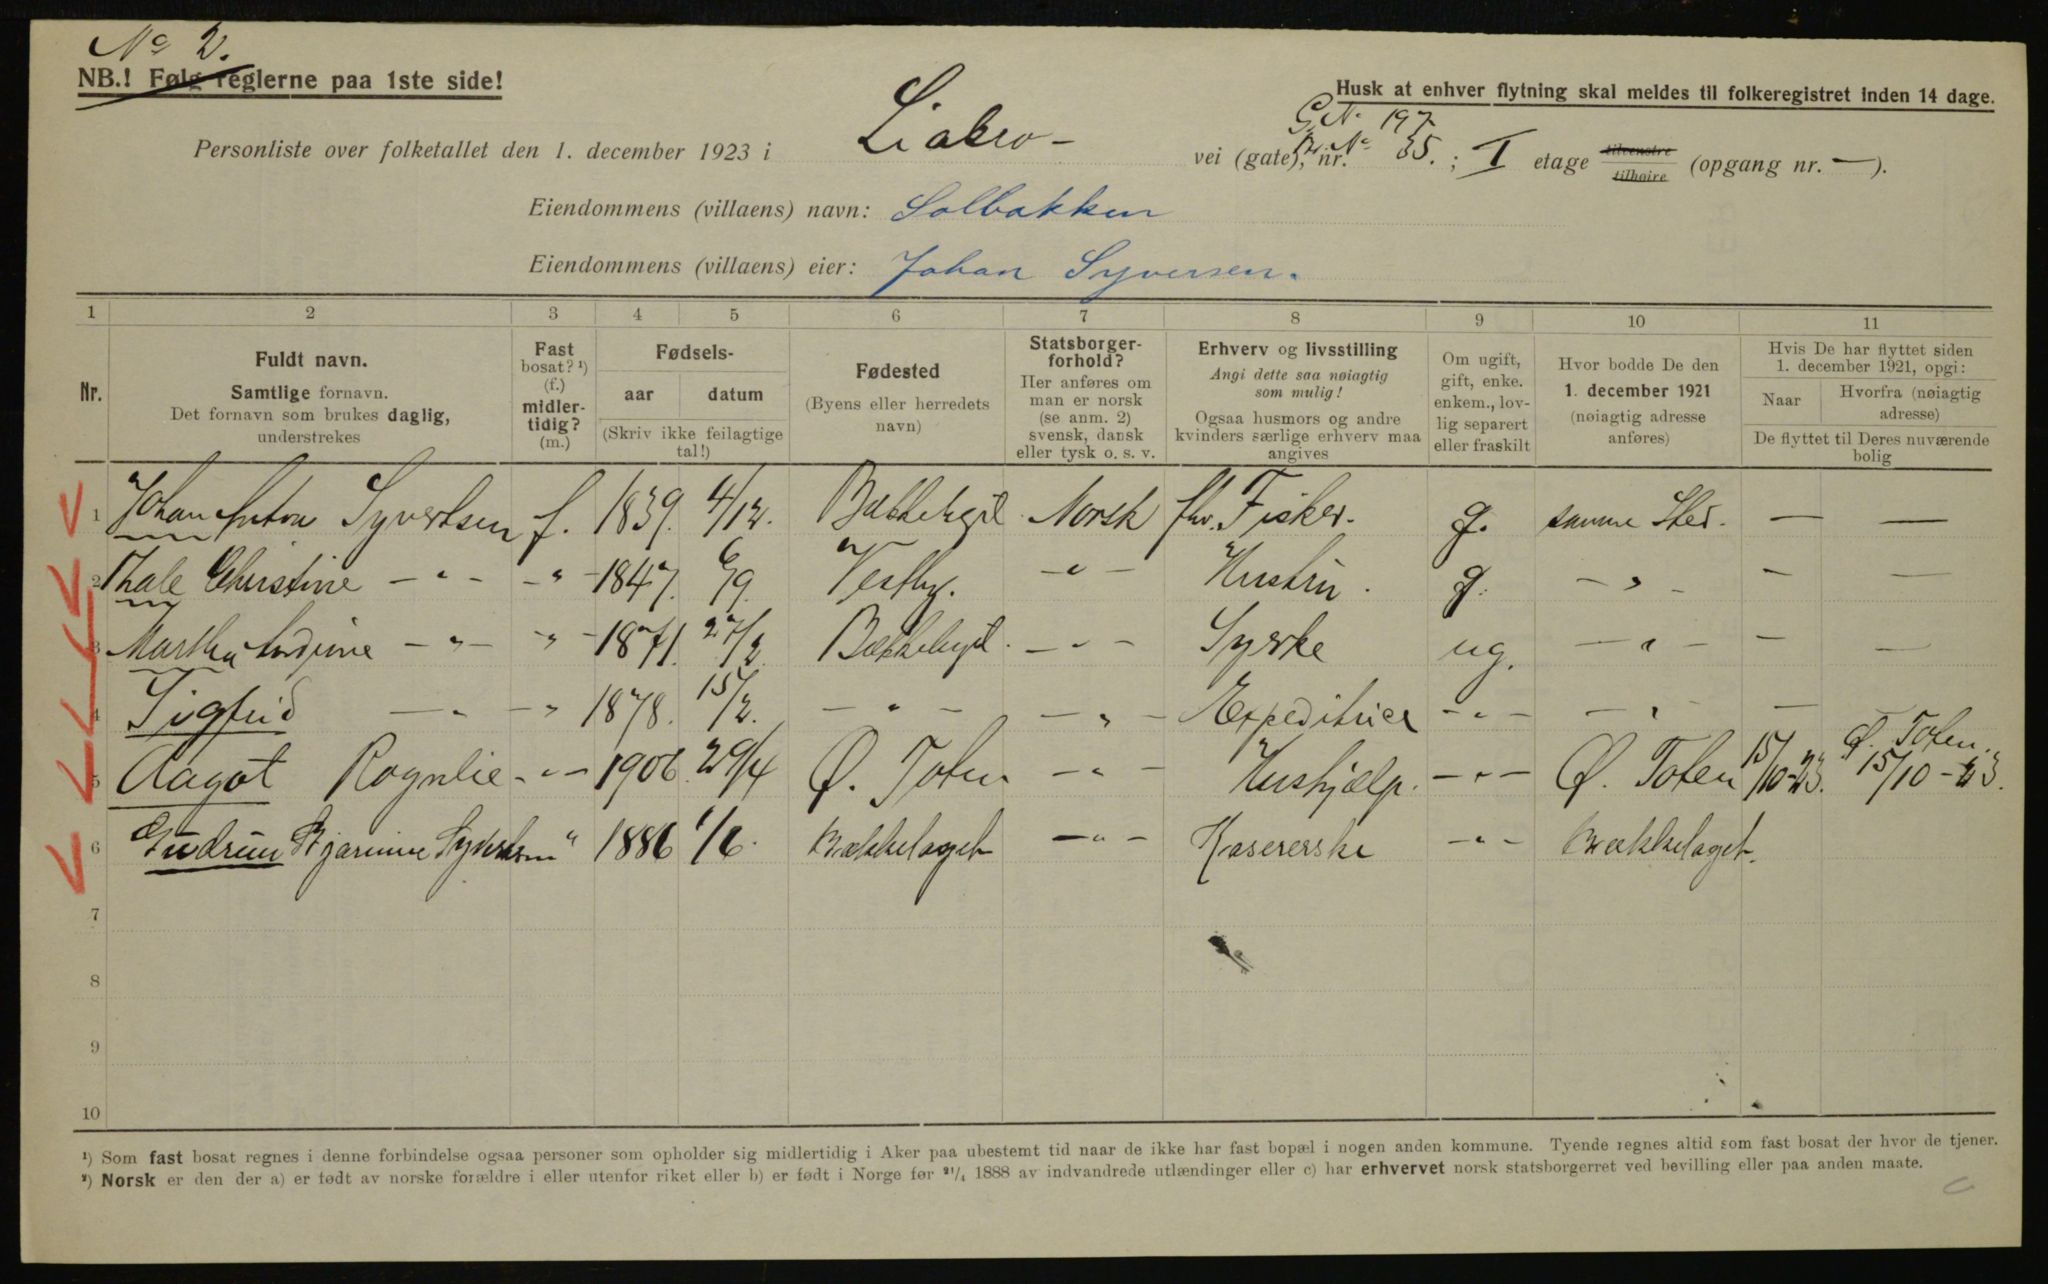 No 2.
NB.! Følg reglerne paa 1ste side!
Husk at enhver flytning skal meldes til folkeregistret inden 14 dage.
G. N. 197
Personliste over folketallet den 1. december 1923 i Liabro – vei (gate), nr. Br. No 35. ; I etage tilvenstre tilhøire (opgang nr. — ).
Eiendommens (villaens) navn: Solbakken
Eiendommens (villaens) eier: Johan Syversen.
1 2 3 4 5 6 7 8 9 10 11
Nr.
Fuldt navn.
Samtlige fornavn.
Det fornavn som brukes daglig,
understrekes
Fast
bosat? ¹)
(f.)
midler-
tidig?
(m.)
Fødsels-
aar datum
(Skriv ikke feilagtige
tal!)
Fødested
(Byens eller herredets
navn)
Statsborger-
forhold?
Her anføres om
man er norsk
(se anm. 2)
svensk, dansk
eller tysk o. s. v.
Erhverv og livsstilling
Angi dette saa nøiagtig
som mulig!
Ogsaa husmors og andre
kvinders særlige erhverv maa
angives
Om ugift,
gift, enke.
enkem., lov-
lig separert
eller fraskilt
Hvor bodde De den
1. december 1921
(nøiagtig adresse
anføres)
Hvis De har flyttet siden
1. december 1921, opgi:
Naar Hvorfra (nøiagtig
adresse)
De flyttet til Deres nuværende
bolig
1 Johan Anton Syvertsen f. 1839. 4/12. Norsk fhv. Fisker. g. samme Sted. — —
2 Thale Christine — " — — " — 1847. 6/9. Vestby. — " — Hustru. g. — " — — —
3 Martha Andine — " — " — 1871. 27/2 — " — Syerske ug. — " — — —
4 Sigfrid — " — " 1878. 15/2. — " — — " — Expeditrice — " — — " — — —
5 Aagot Rognlie — " — 1906. 29/4 Ø. Toten — " — Hushjælp. — " — Ø. Toten 15/10-23. Ø. Toten. 15/10-23.
6 Gudrun Bjarnine Syvertsen " 1886 1/6. Bækkelaget — " — Kasererske — " — Bækkelaget.
7
8
9
10
¹) Som fast bosat regnes i denne forbindelse ogsaa personer som opholder sig midlertidig i Aker paa ubestemt tid naar de ikke har fast bopæl i nogen anden kommune. Tyende regnes altid som fast bosat der hvor de tjener.
²) Norsk er den der a) er født av norske forældre i eller utenfor riket eller b) er født i Norge før ²¹/₄ 1888 av indvandrede utlændinger eller c) har erhvervet norsk statsborgerret ved bevilling eller paa anden maate.